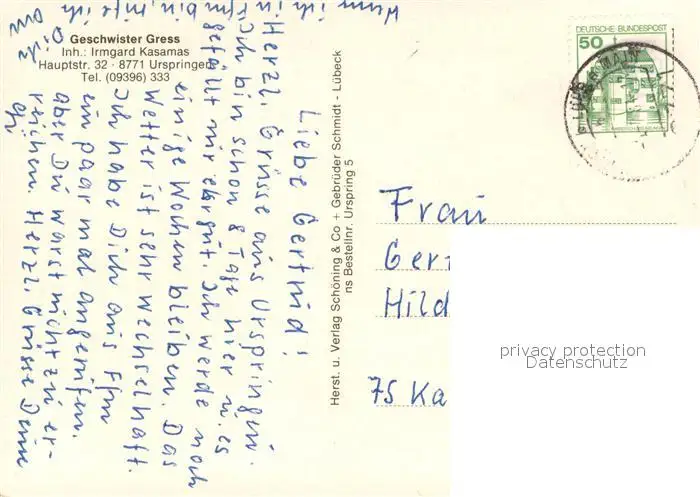 Geschwister Gress
Inh.: Irmgard Kasamas
Hauptstr. 32 · 8771 Urspringen
Tel. (09396) 333
Liebe Gertrud!
Herzl. Grüsse aus Urspringen.
Ich bin schon 8 Tage hier u. es
gefällt mir sehr gut. Ich werde noch
einige Wochen bleiben. Das
Wetter ist sehr wechselhaft.
Ich habe Dich aus Ffm
ein paar mal angerufen.
aber Du warst nicht zu er-
reichen. Herzl. Grüsse Deine
Wenn ich in Ffm bin, rufe ich
Dich an
Herst. u. Verlag Schöning & Co + Gebrüder Schmidt - Lübeck
ns Bestellnr. Urspring 5
DEUTSCHE BUNDESPOST
50
Frau
Ger
Hild
75 Ka
privacy protection
Datenschutz